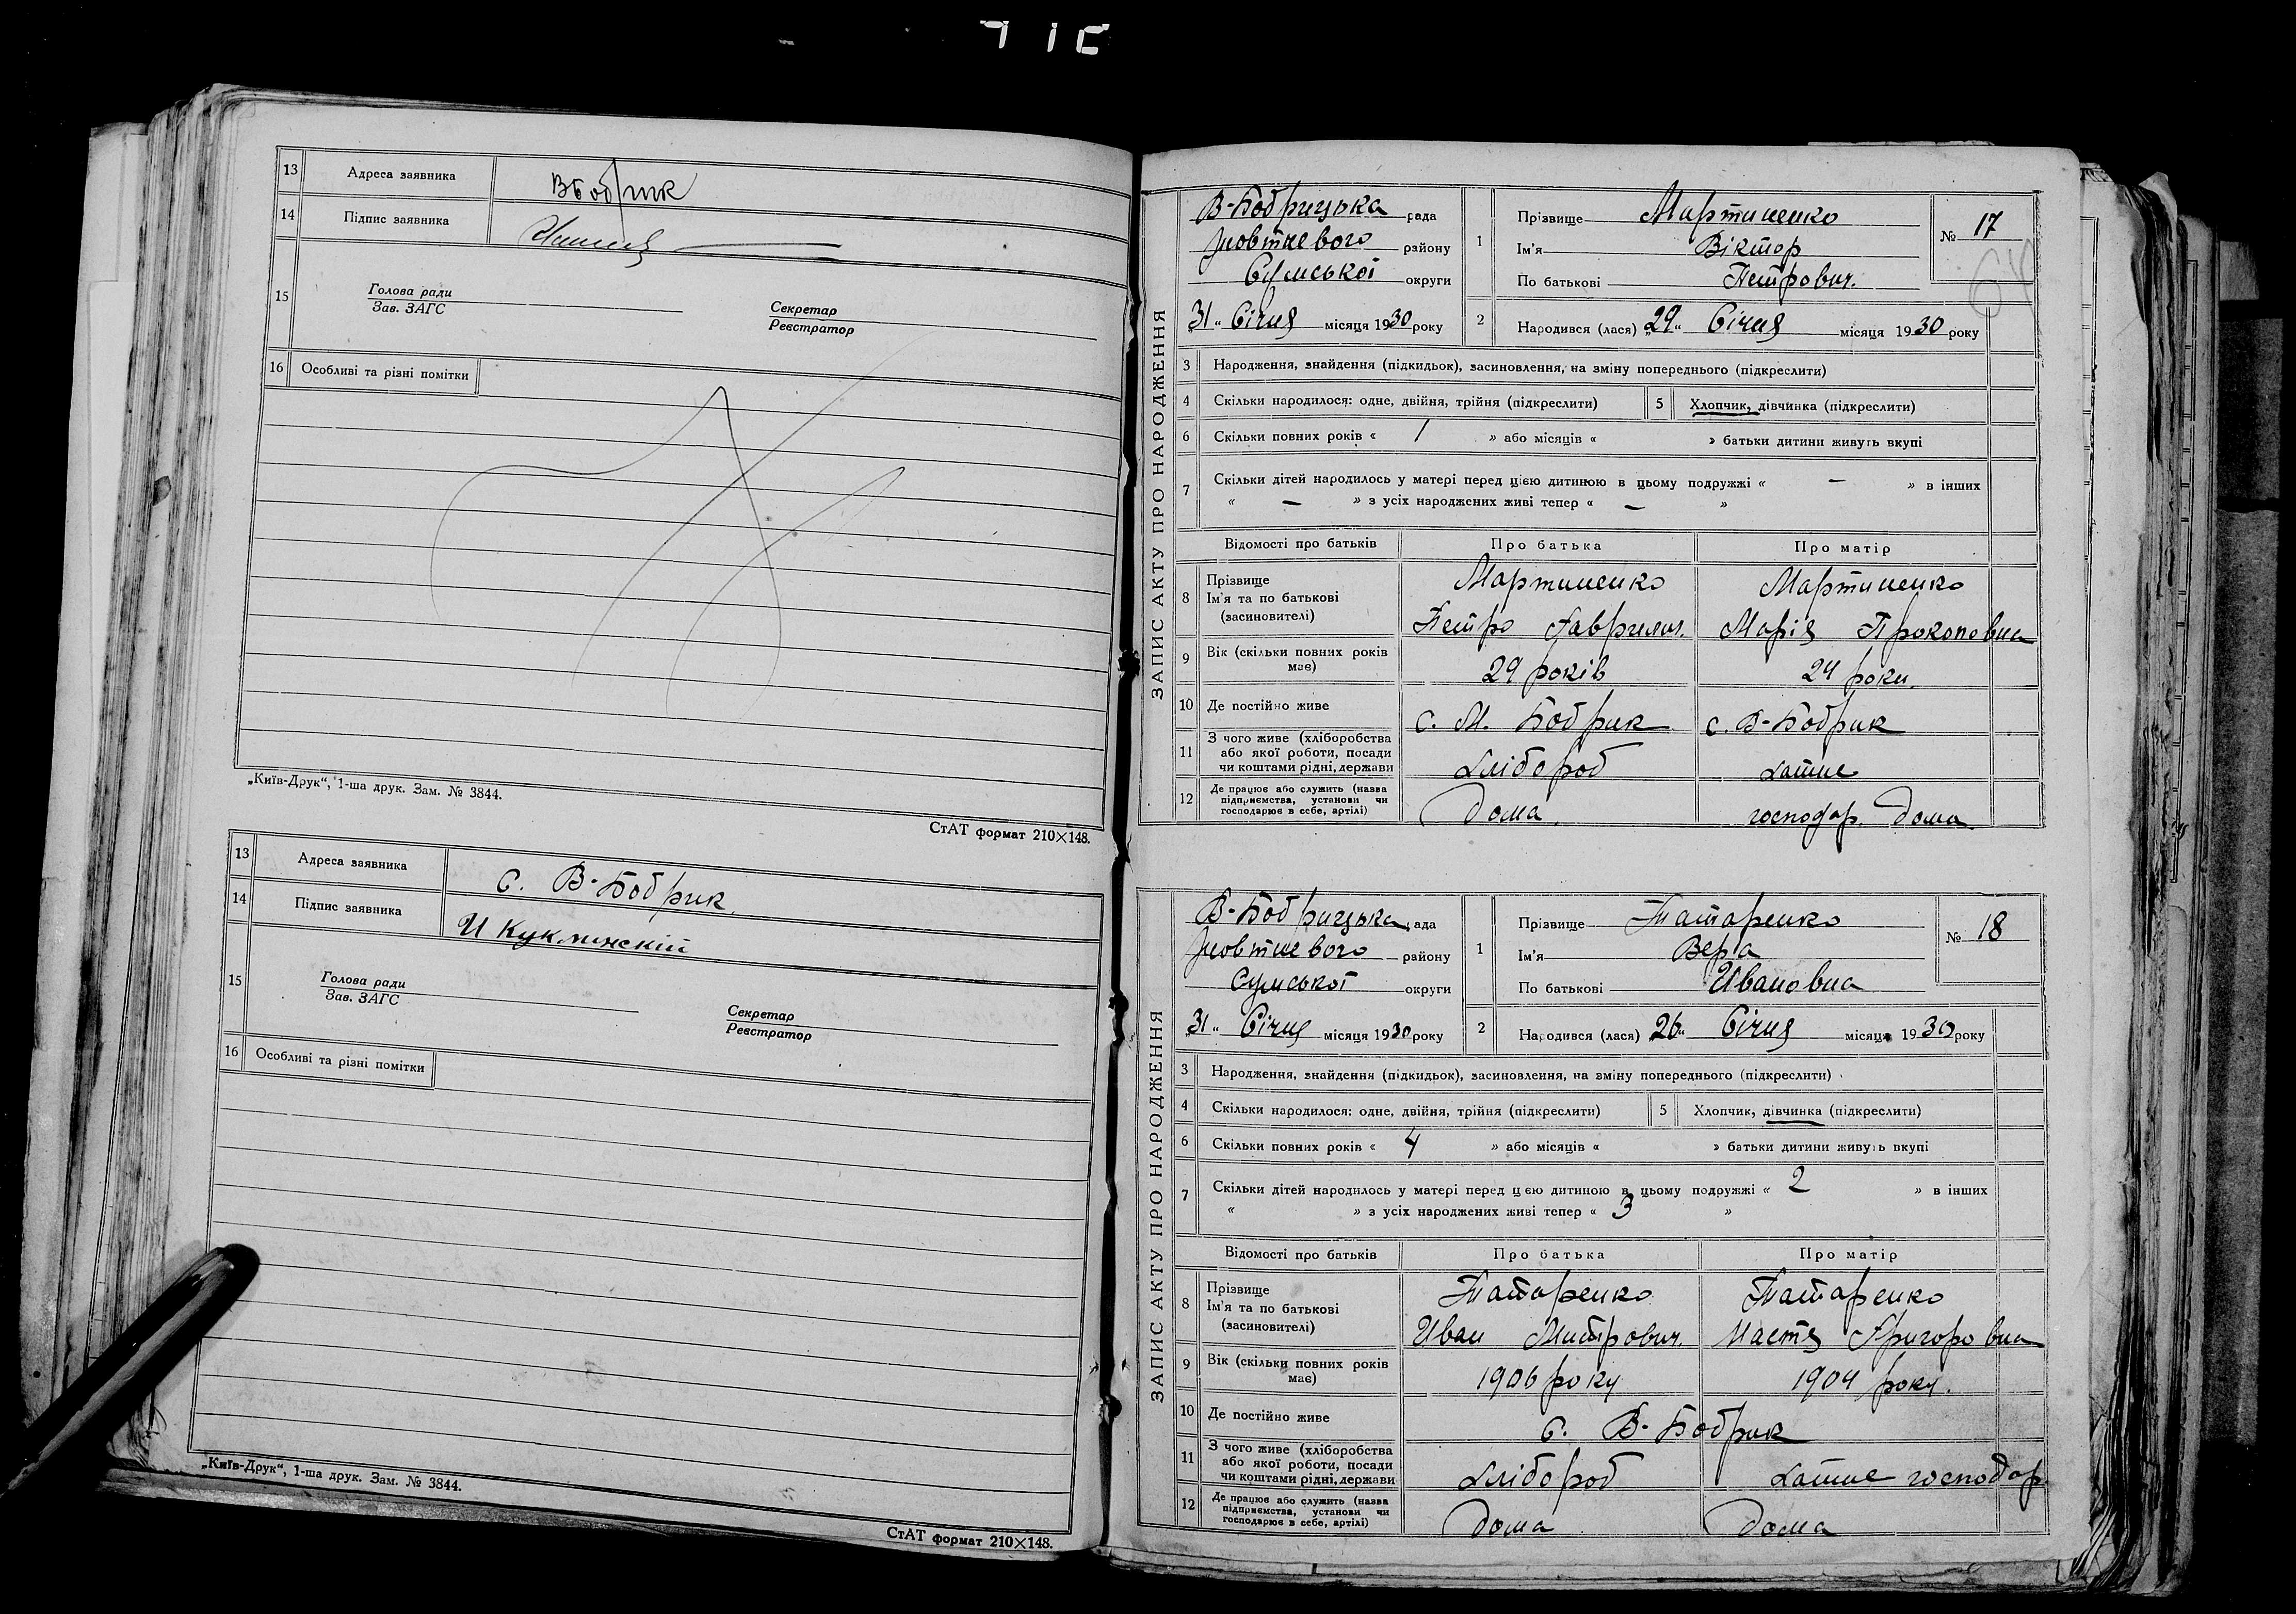 13 Адреса заявника ВБобрик
14 Підпис заявника
15 Голова ради
Зав. ЗАГС
Секретар
Реєстратор
16 Особливі та різні помітки
„Київ-Друк“, 1-ша друк. Зам. № 3844.
СтАТ формат 210×148.
13 Адреса заявника с. В-Бобрик.
14 Підпис заявника И Куклинскій
15 Голова ради
Зав. ЗАГС
Секретар
Реєстратор
16 Особливі та різні помітки
„Київ-Друк“, 1-ша друк. Зам. № 3844.
СтАТ формат 210×148.
ЗАПИС АКТУ ПРО НАРОДЖЕННЯ
В-Бобрицька рада
Жовтневого району
Сумської округи
„31“ Січня місяця 1930 року
1 Прізвище Мартиненко
Ім'я Віктор
По батькові Петрович.
№ 17
64
2 Народився (лася) „29“ Січня місяця 1930 року
3 Народження, знайдення (підкидьок), засиновлення, на зміну попереднього (підкреслити)
4 Скільки народилося: одне, двійня, трійня (підкреслити) 5 Хлопчик, дівчинка (підкреслити)
6 Скільки повних років « 1 » або місяців « » батьки дитини живуть вкупі
7 Скільки дітей народилось у матері перед цією дитиною в цьому подружжі « — » в інших
« — » з усіх народжених живі тепер « — »
Відомості про батьків Про батька Про матір
8 Прізвище Мартиненко Мартиненко
Ім'я та по батькові
(засиновителі) Петро Гаврилов. Марія Прокоповна
9 Вік (скільки повних років має) 29 років 24 роки.
10 Де постійно живе с. М. Бобрик с. В-Бобрик
11 З чого живе (хліборобства
або якої роботи, посади
чи коштами рідні, держави Хлібороб хатнє
12 Де працює або служить (назва
підприємства, установи чи
господарює в себе, артілі) Дома. господар. Дома.
ЗАПИС АКТУ ПРО НАРОДЖЕННЯ
В-Бобрицька рада
Жовтневого району
Сумської округи
„31“ Січня місяця 1930 року
1 Прізвище Татаренко
Ім'я Вера
По батькові Ивановна
№ 18
2 Народився (лася) „26“ Січня місяця 1930 року
3 Народження, знайдення (підкидьок), засиновлення, на зміну попереднього (підкреслити)
4 Скільки народилося: одне, двійня, трійня (підкреслити) 5 Хлопчик, дівчинка (підкреслити)
6 Скільки повних років « 4 » або місяців « » батьки дитини живуть вкупі
7 Скільки дітей народилось у матері перед цією дитиною в цьому подружжі « 2 » в інших
« » з усіх народжених живі тепер « 3 »
Відомості про батьків Про батька Про матір
8 Прізвище Татаренко Татаренко
Ім'я та по батькові
(засиновителі) Иван Митрович. Настя Григоровна
9 Вік (скільки повних років має) 1906 року 1904 року.
10 Де постійно живе с. В-Бобрик
11 З чого живе (хліборобства
або якої роботи, посади
чи коштами рідні, держави Хлібороб хатнє господар.
12 Де працює або служить (назва
підприємства, установи чи
господарює в себе, артілі) Дома Дома